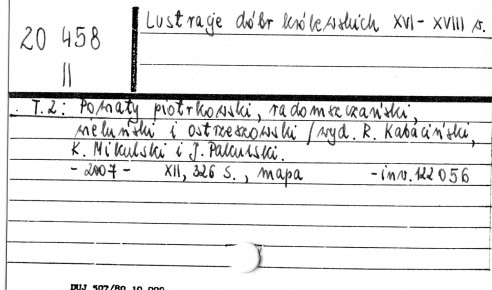 Lustracje dóbr królewskich XVI-XVIII w.
20 458
II
T.2: Powiaty piotrkowski, radomszczański,
wieluński i ostrzeszowski / wyd. R. Kabaciński,
K. Mikulski i J. Pakulski.
- 2007 - XII, 326 s., mapa - inv. 122056
DUJ 507/80 10.000